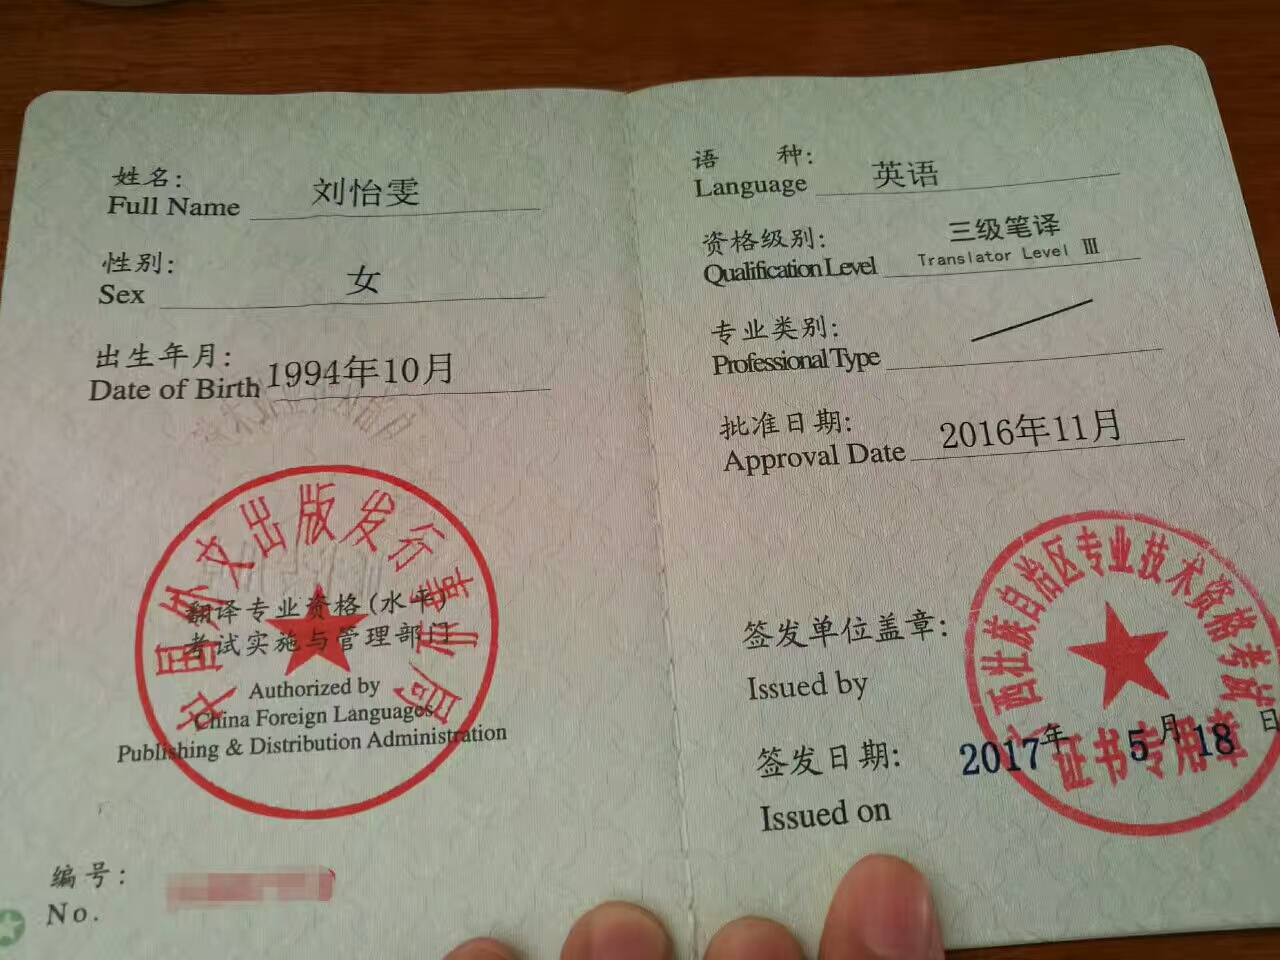 姓名: 刘怡雯
Full Name
性别: 女
Sex
出生年月: 1994年10月
Date of Birth
中国外文出版发行事业局
翻译专业资格(水平)
考试实施与管理部门
Authorized by
China Foreign Languages
Publishing & Distribution Administration
编号:
No.
语 种: 英语
Language
资格级别: 三级笔译
Qualification Level Translator Level Ⅲ
专业类别:
Professional Type
批准日期: 2016年11月
Approval Date
签发单位盖章:
Issued by
广西壮族自治区专业技术资格考试
证书专用章
签发日期: 2017年 5月 18日
Issued on